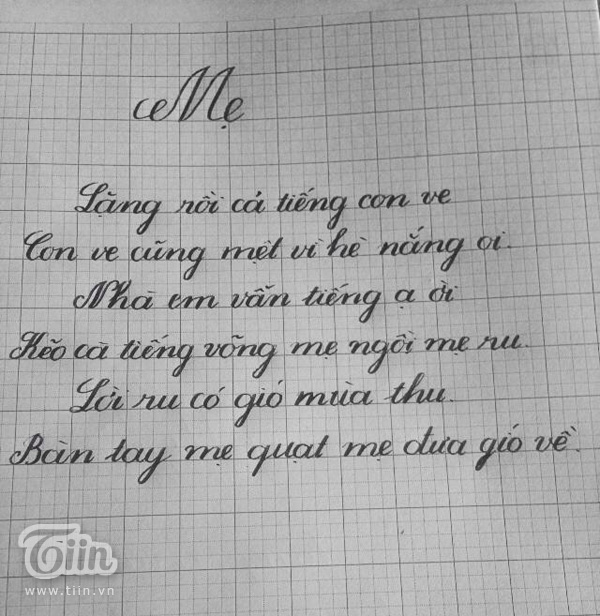 Mẹ
Lặng rồi cả tiếng con ve
Con ve cũng mệt vì hè nắng oi.
Nhà em vẫn tiếng ạ ời
Kẽo cà tiếng võng mẹ ngồi mẹ ru.
Lời ru có gió mùa thu.
Bàn tay mẹ quạt mẹ đưa gió về.
Tiin
www.tiin.vn